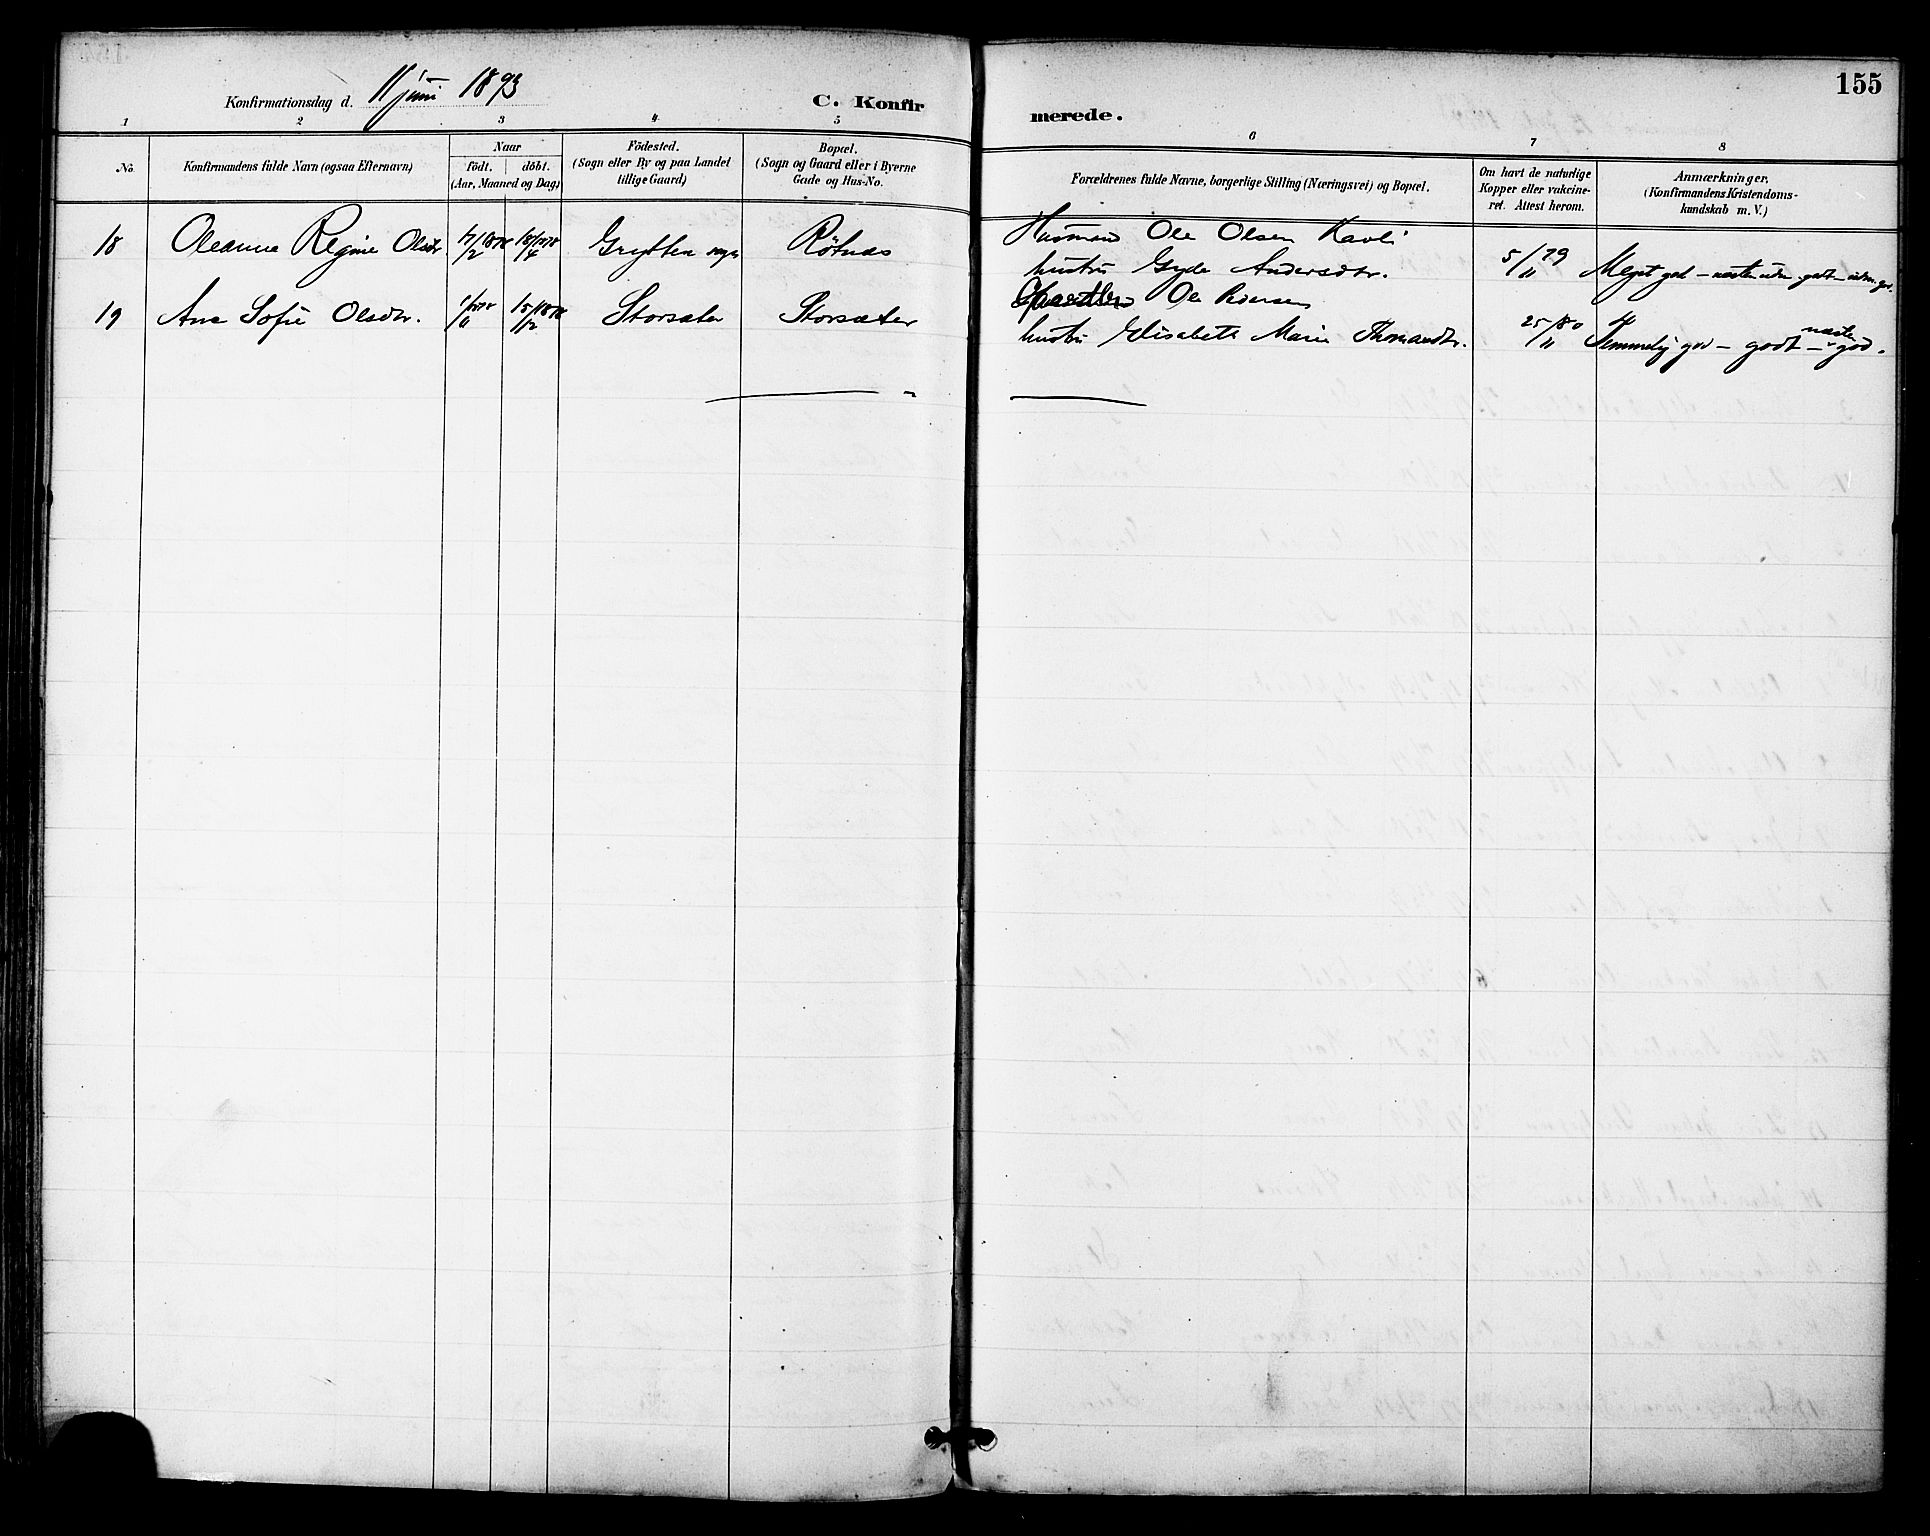 155
Konfirmationsdag d. 11 juni 1893
C. Konfirmerede.
1 2 3 4 5 6 7 8
No.
Konfirmandens fulde Navn (ogsaa Efternavn)
Naar
födt. döbt.
(Aar, Maaned og Dag)
Födested.
(Sogn eller By og paa Landet
tillige Gaard)
Bopæl.
(Sogn og Gaard eller i Byerne
Gade og Hus-No.
Forældrenes fulde Navne, borgerlige Stilling (Næringsvei) og Bopæl.
Om havt de naturlige
Kopper eller vakcine-
ret. Attest herom.
Anmærkninger.
(Konfirmandens Kristendoms-
kundskab m. V.)
18 Oleanna Regine Olsdr. 17/2 1878 18/4 1878 Grytten Rötnes Husmand Ole Olsen Kavli
hustru Gyda Andersdtr. 5/11 79 Meget god - næsten udm. godt - udm. god.
19 Ane Sofie Olsdtr. 1/11 1878 15/12 1878 Storsæter Storsæter Ole Pedersen
hustru Elisabeth Marie Thomasdtr. 25/11 80 Temmelig god - godt - næsten god.